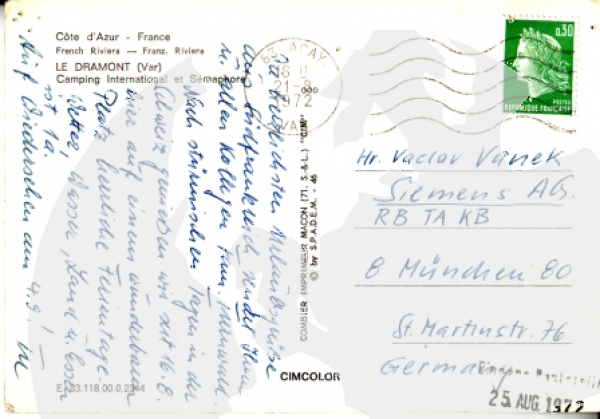 Côte d'Azur - France
French Riviera — Franz. Riviera
LE DRAMONT (Var)
Camping International et Sémaphore
83 AGAY
21-8
1972
VAR
0,30
POSTES
REPUBLIQUE FRANÇAISE
Die herzlichsten Urlaubsgrüße
aus Südfrankreich sendet Ihnen
u. allen Kollegen Fam.
Nach stürmischen Tagen in der
Schweiz genießen wir seit 16.8.
hier auf einem wunderbaren
Platz herrliche Ferientage.
Wetter, Wasser, Land u. Essen
ist 1a.
Auf Wiedersehen am 4.9.!
COMBIER IMPRIMEUR MACON (71. S.-&-L.) "CIM"
© by S.P.A.D.E.M. - 46
Hr. Vaclav Vanek
Siemens AG.
RB TA KB
8 München 80
St. Martinstr. 76
Germany
CIMCOLOR
E. 83.118.00.0.2344
25. AUG. 1972